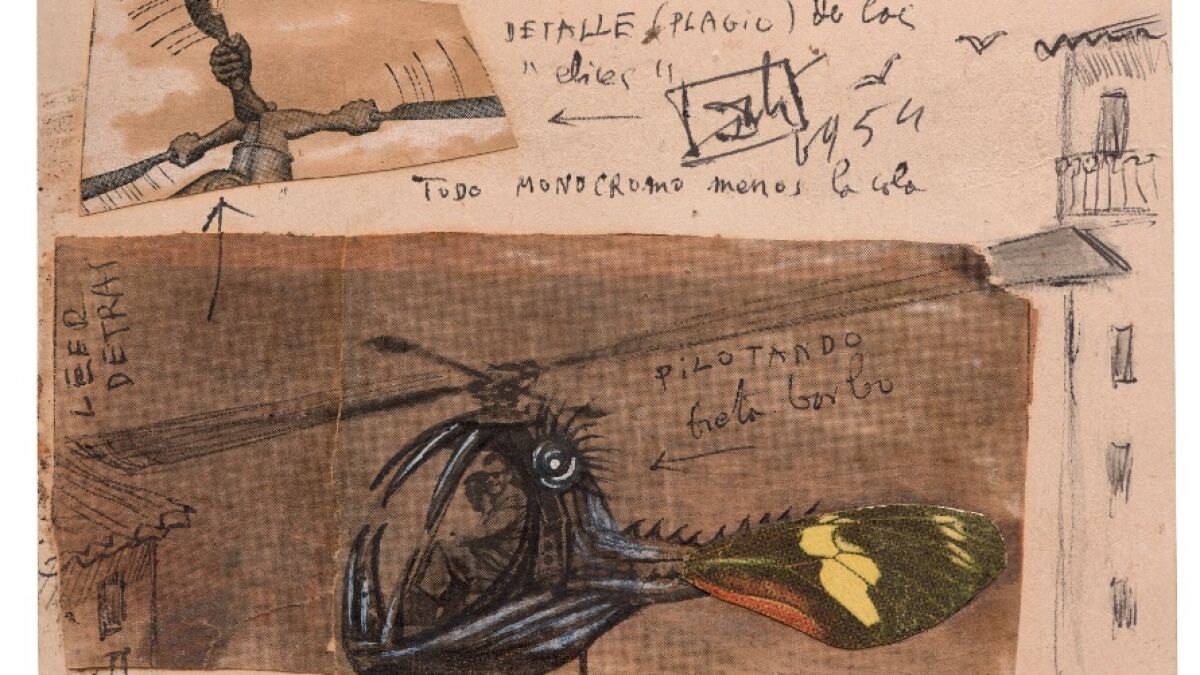 DETALLE (PLAGIO) de las
"elices"
1954
TODO MONOCROMO menos la cola
LEER
DETRAS
PILOTANDO